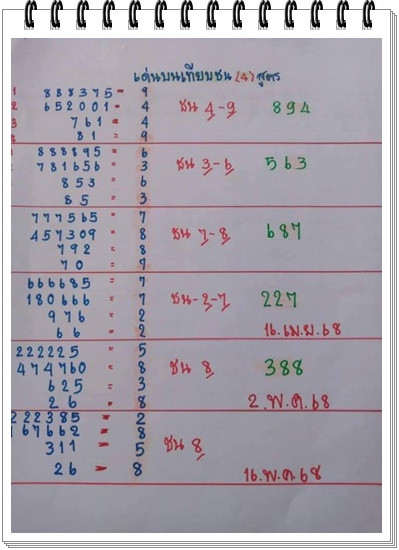 เด่นบนเทียบชน (4) สูตร
888375 = 9
652001 = 4 ชน 4-9 894
761 = 4
81 = 9
888895 = 6
781656 = 3 ชน 3-6 563
853 = 6
85 = 3
777565 = 7
457309 = 8 ชน 7-8 687
792 = 8
70 = 7
666685 = 7
180666 = 7 ชน-2-7 227
976 = 2
66 = 2 16.เม.ย.68
222225 = 5
474760 = 8 ชน 8 388
625 = 3
26 = 8 2.พ.ค.68
222385 = 2
167662 = 8
311 = 5 ชน 8
26 = 8 16.พ.ค 68